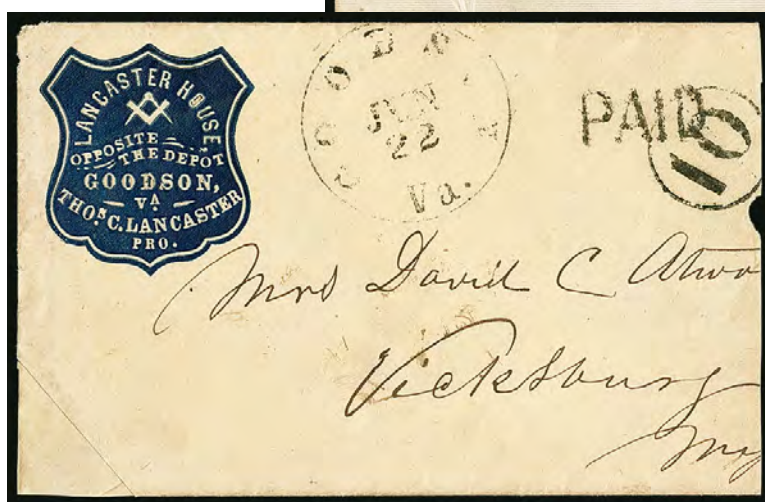 LANCASTER HOUSE,
OPPOSITE
THE DEPOT
GOODSON,
VA
THOS. C. LANCASTER
PRO.
GOODSON
JUN
22
Va.
PAID
10
Mrs David C Atwo
Vicksburg